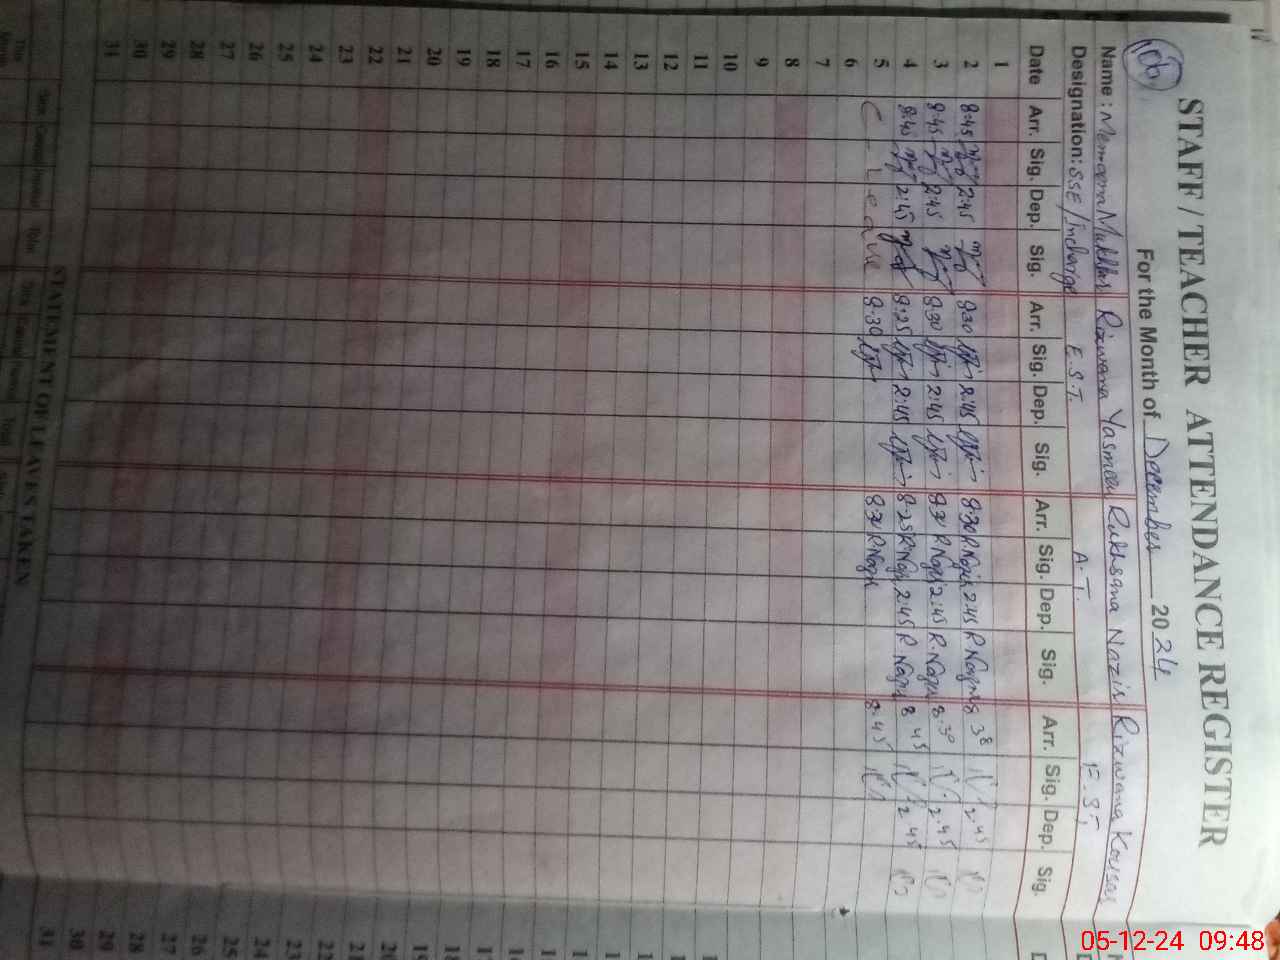 STAFF / TEACHER ATTENDANCE REGISTER
For the Month of December 2024
106
Name : Memoona Mukhtar Rizwana Yasmeen Rukhsana Nazir Rizwana Kousar
Designation: SSE/Incharge E.S.T. A.T. E.ST,
Date Arr. Sig. Dep. Sig. Arr. Sig. Dep. Sig. Arr. Sig. Dep. Sig. Arr. Sig. Dep. Sig.
1
2 8:45 2:45 8:30 2:45 8:30 R.Nazir 2:45 R.Nazir 8 38 2.45
3 8:45 2:45 8:30 2:45 8:30 R.Nazir 2:45 R.Nazir 8.30 2.45
4 8:45 2:45 8:25 2:45 8:25 R.Nazir 2:45 R.Nazir 8 45 2 45
5 C - Leave 8:30 8:30 R.Nazir 8.45
6
7
8
9
10
11
12
13
14
15
16
17
18
19
20
21
22
23
24
25
26
27
28
29
30
31
STATEMENT OF LEAVES TAKEN
This Month
Total
05-12-24 09:48